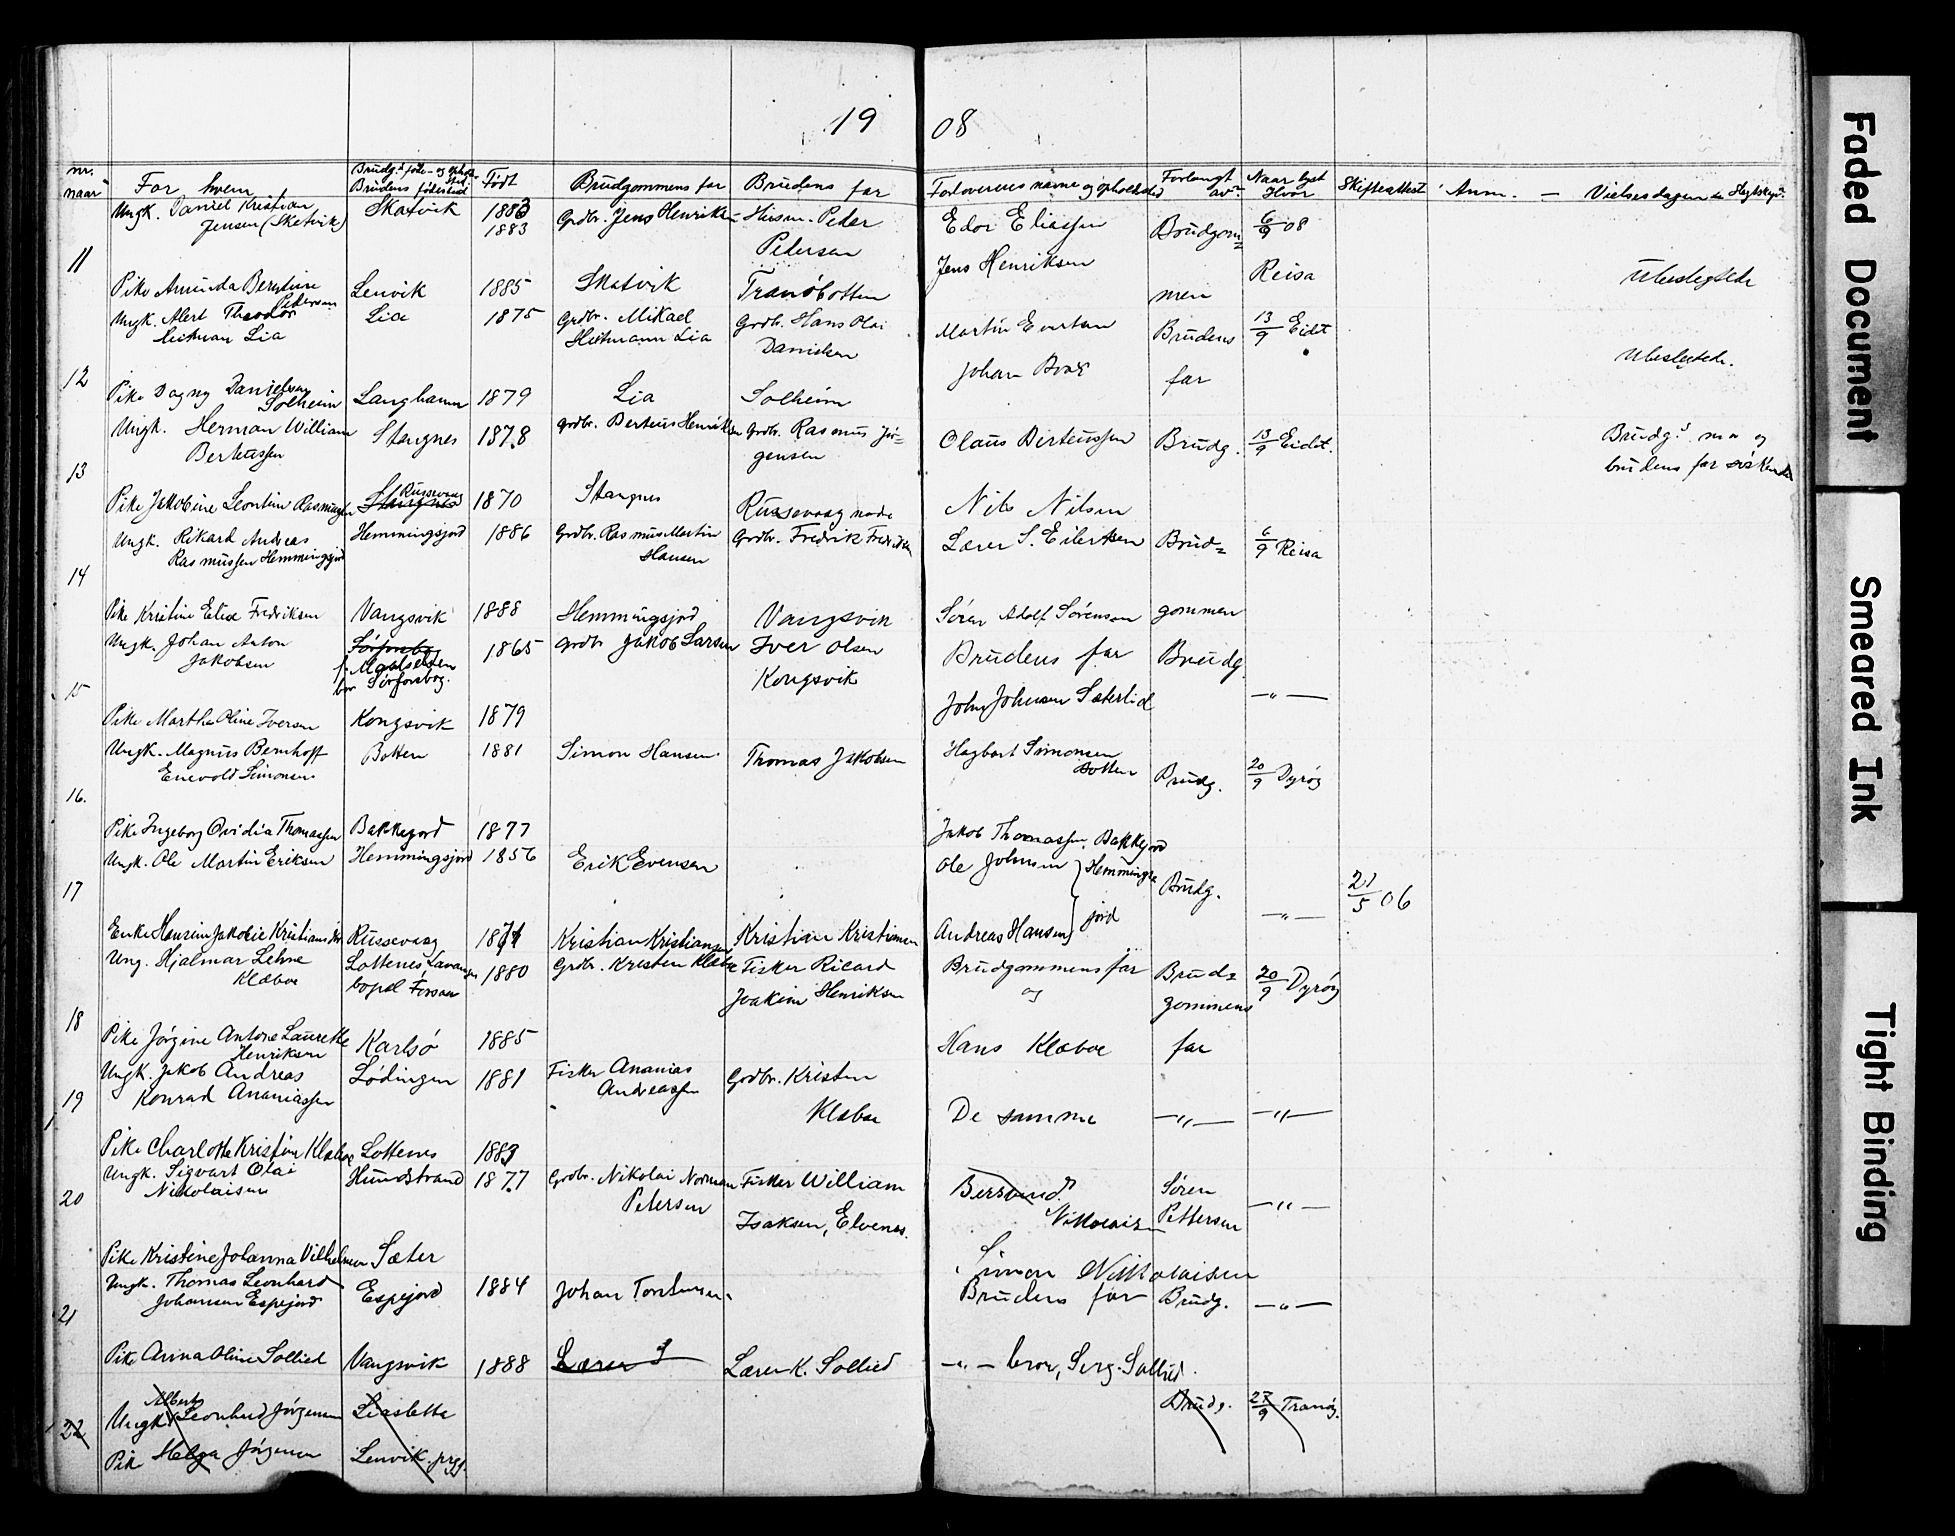 19 08
nr. naar For hvem Brudg.s føde- og opholdssted Brudens fødested Født Brudgommens far Brudens far Forloverens navne og opholdssted Forlangt av Naar lyst Hvor Skifteattest Anm. — Vielsesdagen
11
Ungk. Daniel Kristian Skatvik 1883 Grdbr. Jens Henriksen Husm. Peder Edor Eliassen Brudgom= 6/9 08
Jensen (Skatvik) 1883 Petersen Jens Henriksen Reisa Ubeslegtede
Pike Amunda Berntine Petersen Lenvik 1885 Skatvik Tranöbotten men
12
Ungk. Alert Theodor Lia 1875 Grdbr. Mikael Grdb. Hans Olai Martin Evertsen Brudens 13/9 Eidt
Heitmann Lia Heitmann Lia Danielsen Johan far Ubeslegtede.
Pike Dagny Danielsen Solheim Langhamn 1879 Lia Solheim
13
Ungk. Herman William Stangnes 1878 grdbr. Berteus Henriksen Grdb. Rasmus Jör= Olaus Berteussen Brudg. 13/9 Eidet. Brudg.s mor og
Berteussen gensen brudens far söskende
Pike Jakobine Leontine Rasmussen Stangnes Russevaag 1870 Stangnes Russevaag Nils Nilsen
14
Ungk. Rikard Andreas Hemmingsjord 1886 Grdbr. Rasmus Martin Grdbr. Fredrik Fredriksen Lærer S. Eilertsen Brud= 6/9 Reisa
Rasmussen Hemmingsjord Hansen
Pike Kristine Elise Fredriksen Vangsvik 1888 Hemmingsjord Vangsvik Sören Adolf Sörensen gommen
15
Ungk. Johan Anton Sörforsbog 1865 Grdbr. Jakob Larsen Iver Olsen Brudens far Brudg
Jakobsen f. Maalselven Kongsvik
bor Sörforsbog. John Johnsen Sæterlid —"—
Pike Martha Oline Iversen Kongsvik 1879
16.
Ungk. Magnus Bernhoff Botten 1881 Simon Hansen Thomas Jakobsen Hagbart Simonsen Brudg. 20/9 Dyröy
Enevold Simonsen Botten
Pike Ingeborg Ovidia Thomassen Bakkejord 1877 Jakob Thomassen, Bakkejord
17
Ungk. Ole Martin Eriksen Hemmingsjord 1856 Erik Evensen Ole Johnsen } Hemmings= Brudg. —"— 21/5 06
Enke Hansine Jakobie Kristians dtr Russevaag 1871 Kristian Kristiansen Kristian Kristiansen Andreas Hansen } jord
18
Ung. Hjalmar Lehne Lottenes Lavangen 1880 Grdbr. Kristen Klæboe Fisker Ricard Brudgommens far Brud= 20/9 Dyröy
Klæboe bopæl Forsaa Joakim Henriksen og gommens
Pike Jörgine Antone Laurette Henriksen Karlsö 1885 Hans Klæboe far
19
Ungk. Jakob Andreas Lödingen 1881 Fisker Ananias Grdbr. Kristen
Konrad Ananiassen Andreassen Klæboe De samme —"— —"—
Pike Charlotte Kristine Klæboe Lottenes 1883
20
Ungk. Sigvart Olai Hundstrand 1877 Grdbr. Nikolai Norman Fisker William Bersvend Sören —"—
Nikolaisen Petersen Isaksen, Elvenes. Nikolaisen Pettersen
Pike Kristine Johanna Vilhelmsen Sæter Simon Nikolaisen
21
Ungk. Thomas Leonhard Espejord 1884 Johan Torstensen Brudens far Brudg. —"—
Johansen Espejord
Pike Anna Oline Sollied Vangsvik 1888 Lærer S Lærer K. Sollied —"— bror, Serg. Sollied.
22
Ungk. Albert Leonhard Jörgensen Liasletta Brudg. 27/9 Tranöy.
Pik Helga Jörgensen Lenvik prgj.
Faded Document
Smeared Ink
Tight Binding